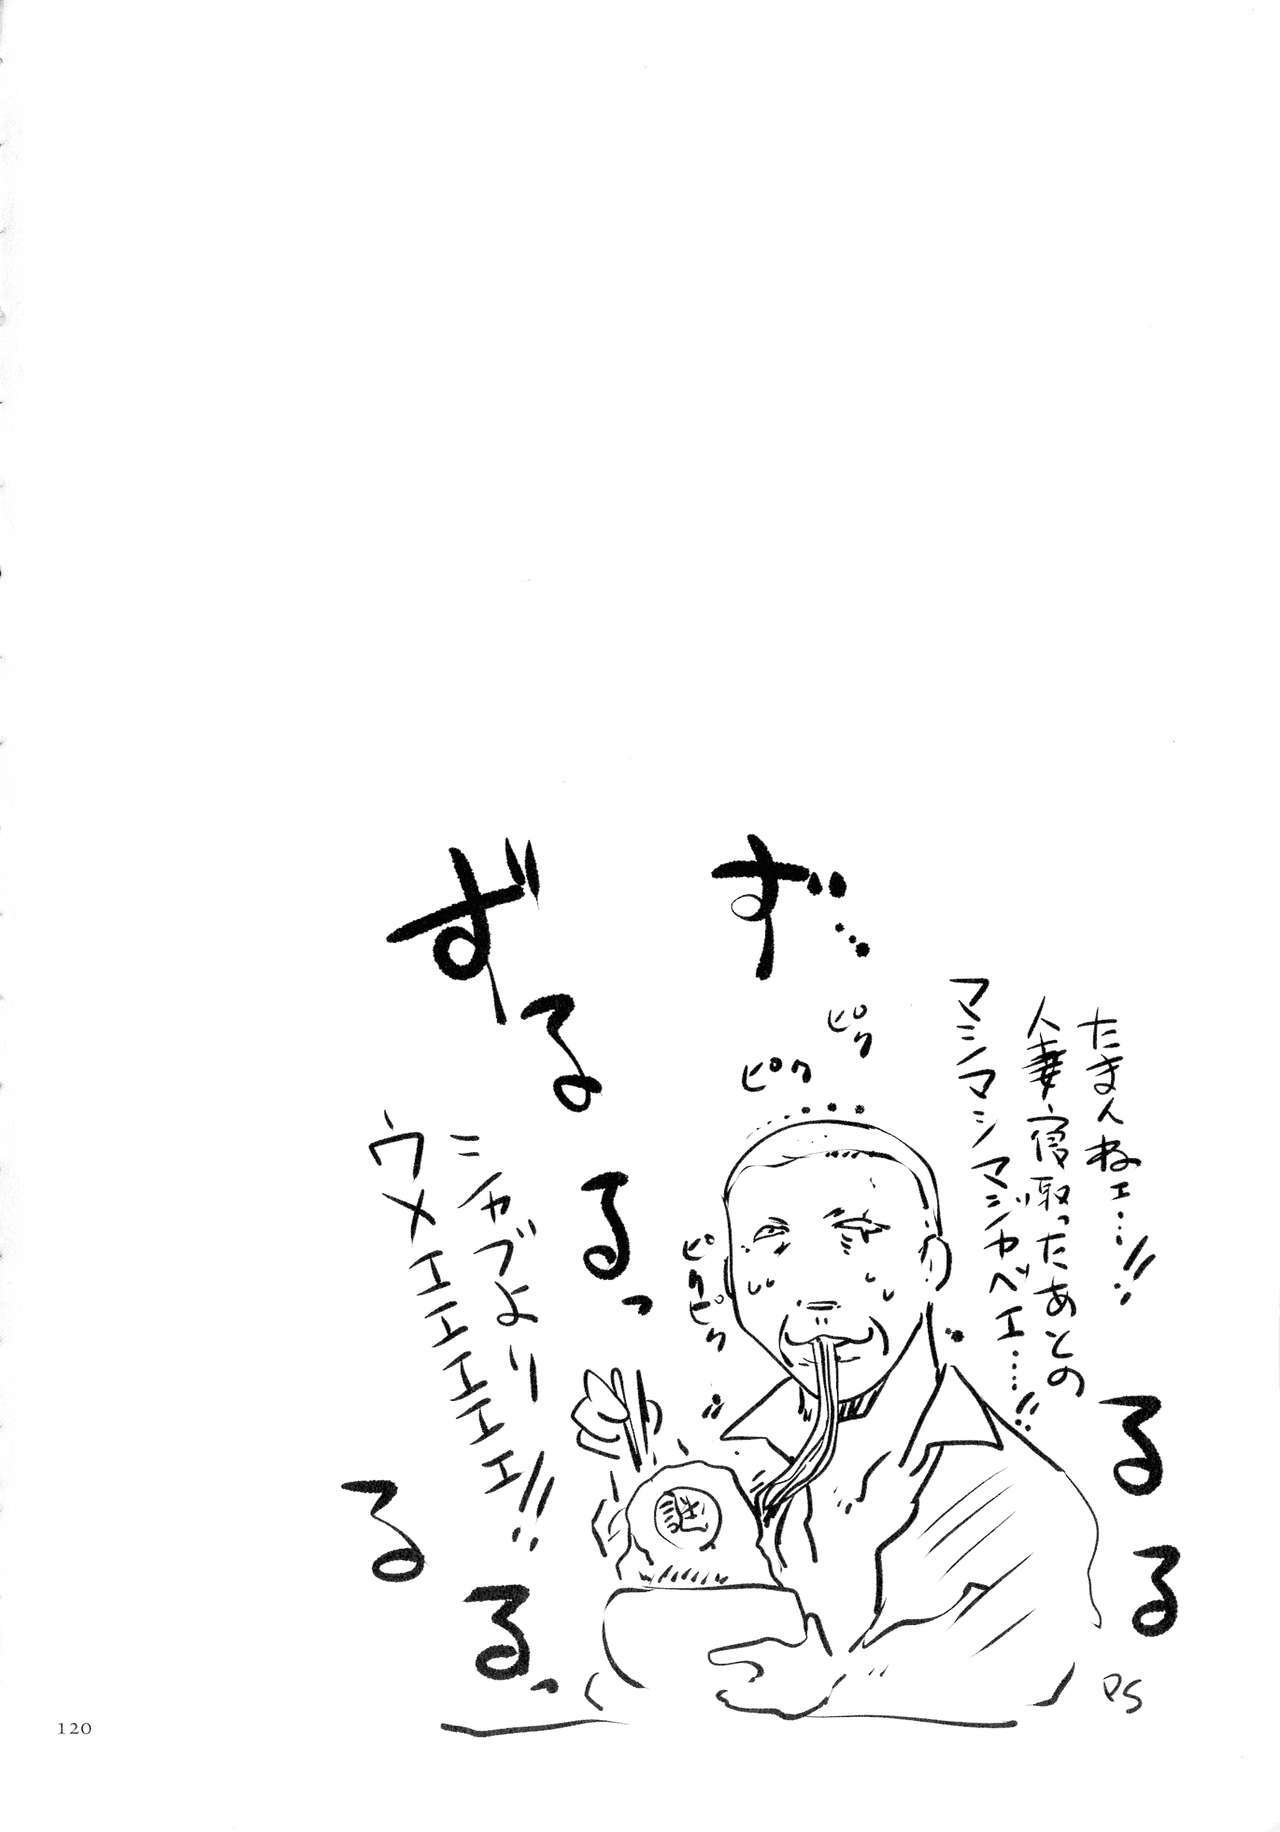 たまんねェ…!!
人妻寝取ったあとの
マシマシマジャベェ…!!
ず…
ピク
ピク
ピクピク
ずるるっ
シャブより
ウメェェェェェ!!
るる
るるっ
PS
120